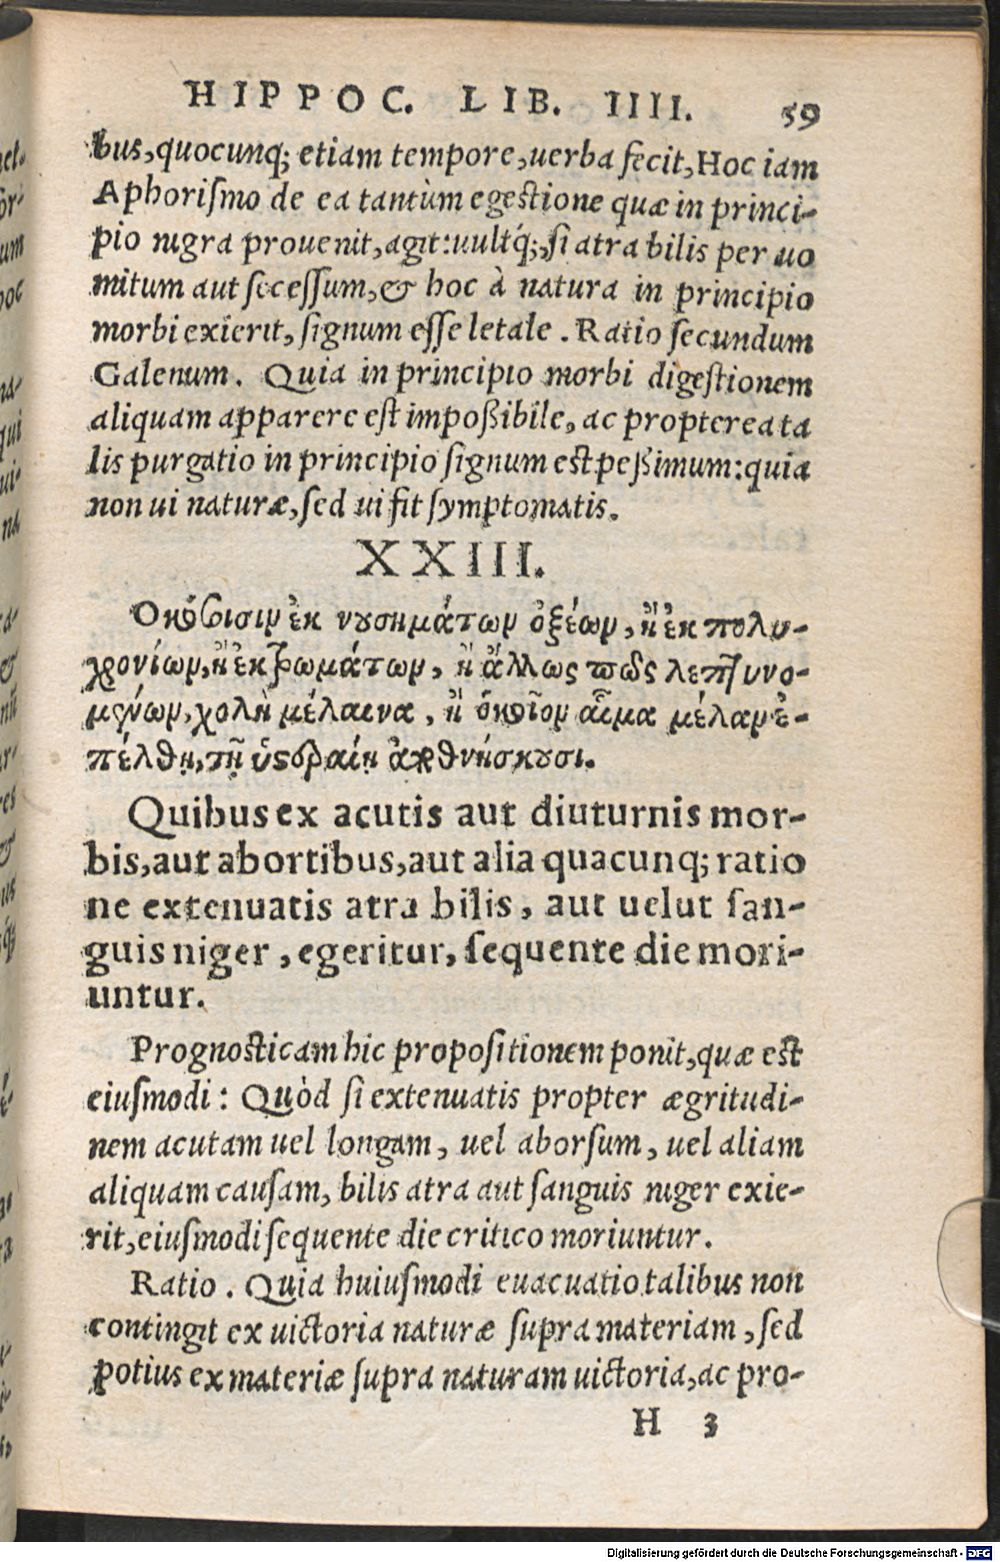 HIPPOC. LIB. IIII. 59
bus, quocunq; etiam tempore, uerba fecit, Hoc iam
Aphoriſmo de ea tantùm egeſtione quæ in princi-
pio nigra prouenit, agit: uultq́;, ſi atra bilis per uo
mitum aut ſeceſſum, & hoc à natura in principio
morbi exierit, ſignum eſſe letale. Ratio ſecundum
Galenum. Quia in principio morbi digeſtionem
aliquam apparere eſt impoßibile, ac propterea ta
lis purgatio in principio ſignum eſt peßimum: quia
non ui naturæ, ſed ui fit ſymptomatis.
XXIII.
Ὁκόσοισιν ἐκ νουσημάτων ὀξέων, ἢ ἐκ πολυ-
χρονίων, ἢ ἐκ τρωμάτων, ἢ ἄλλως πως λεπτυνο-
μένων, χολὴ μέλαινα, ἢ ὁκοῖον αἷμα μέλαν ἐ-
πέλθῃ, τῇ ὑστεραίῃ ἀποθνήσκουσι.
Quibus ex acutis aut diuturnis mor-
bis, aut abortibus, aut alia quacunq; ratio
ne extenuatis atra bilis, aut uelut ſan-
guis niger, egeritur, ſequente die mori-
untur.
Prognoſticam hic propoſitionem ponit, quæ eſt
eiuſmodi: Quòd ſi extenuatis propter ægritudi-
nem acutam uel longam, uel aborſum, uel aliam
aliquam cauſam, bilis atra aut ſanguis niger exie-
rit, eiuſmodi ſequente die critico moriuntur.
Ratio. Quia huiuſmodi euacuatio talibus non
contingit ex uictoria naturæ ſupra materiam, ſed
potius ex materiæ ſupra naturam uictoria, ac pro-
H 3
Digitalisierung gefördert durch die Deutsche Forschungsgemeinschaft - DFG